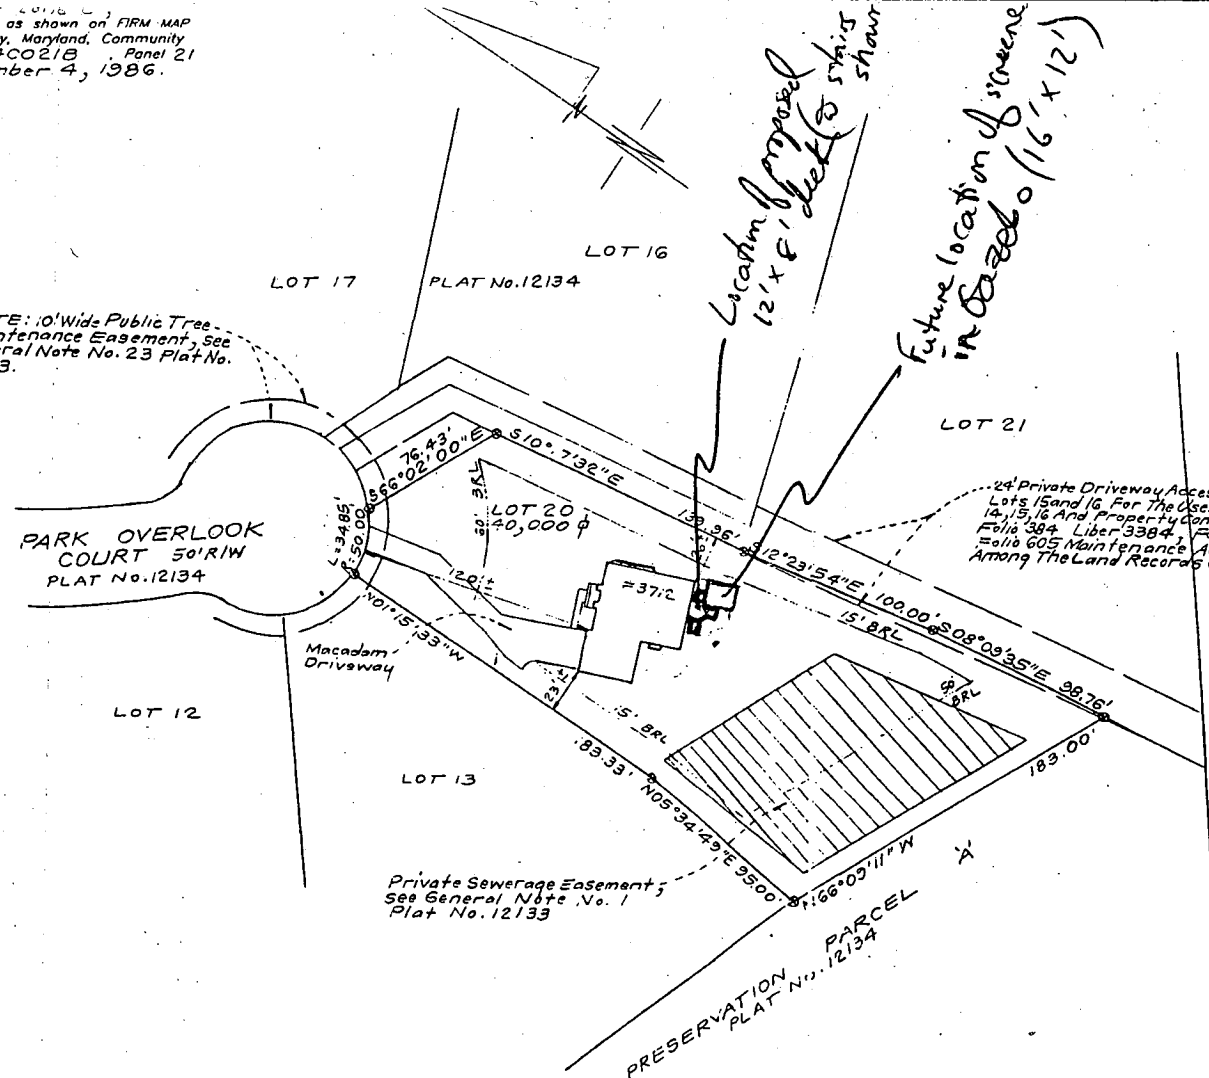 as shown on FIRM MAP
y, Maryland, Community
C021B Panel 21
mber 4, 1986.
Location of proposed
12' x 8' deck (
stairs
shown
Future location of screene
in Gazebo (16' x 12')
LOT 17
PLAT No.12134
LOT 16
TE: 10' Wide Public Tree
ntenance Easement, see
eral Note No. 23 Plat No.
3.
LOT 21
76.43'
S66°02'00"E
S10° 7'32"E
139.96'
LOT 20
40,000
3RL
24' Private Driveway Acces
Lots 15 and 16 For The Use
14,15,16 And Property
Folio 384 Liber 3384,
Folio 605 Maintenance A
Among The Land Records
PARK OVERLOOK
COURT 50'R/W
PLAT No.12134
L=34.85'
R=50.00'
120'±
S12°23'54"E 100.00'
S08°09'35"E 98.76'
15' BRL
BRL
N01°15'33"W
183.33'
Macadam
Driveway
23'±
15' BRL
LOT 12
LOT 13
N05°34'49"E 95.00'
183.00'
N66°09'11"W
Private Sewerage Easement;
See General Note No. 1
Plat No. 12133
PRESERVATION PARCEL 'A'
PLAT No. 12134